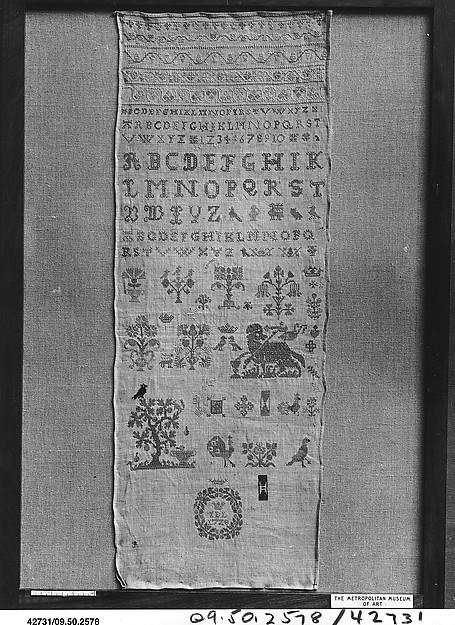 ABCDEFGHIKLMNOPQRSTVWXYZ
ABCDEFGHIKLMNOPQRST
VWXYZ 1234 678910
ABCDEFGHIK
LMNOPQRST
YZ
ABCDEFGHIKLMNOPQ
RSTVVWXYZ
1720
H
THE METROPOLITAN MUSEUM
OF ART
42731/09.50.2578
09.50.2578/42731